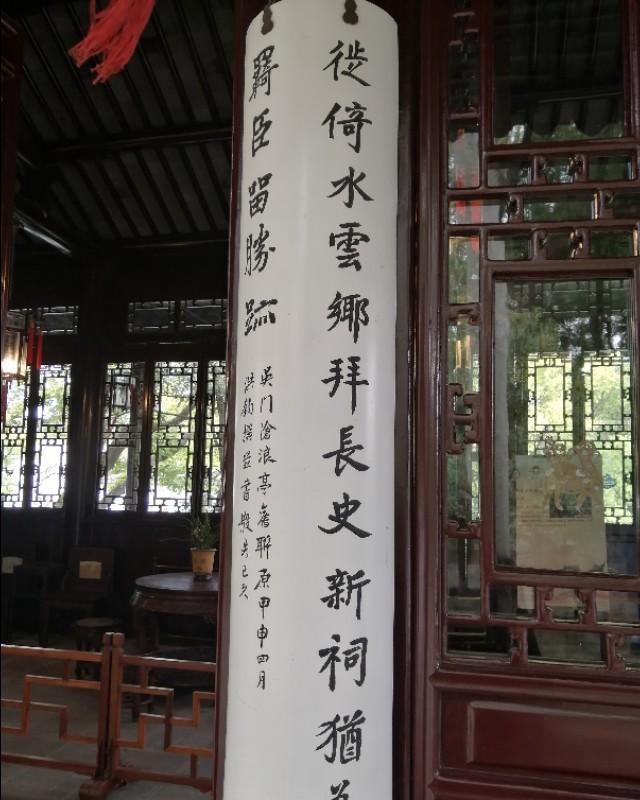 徙倚水雲鄉拜長史新祠猶
羇臣留勝蹟
吳門滄浪亭舊聯原甲申四月
洪鈞撰並書毀失已久